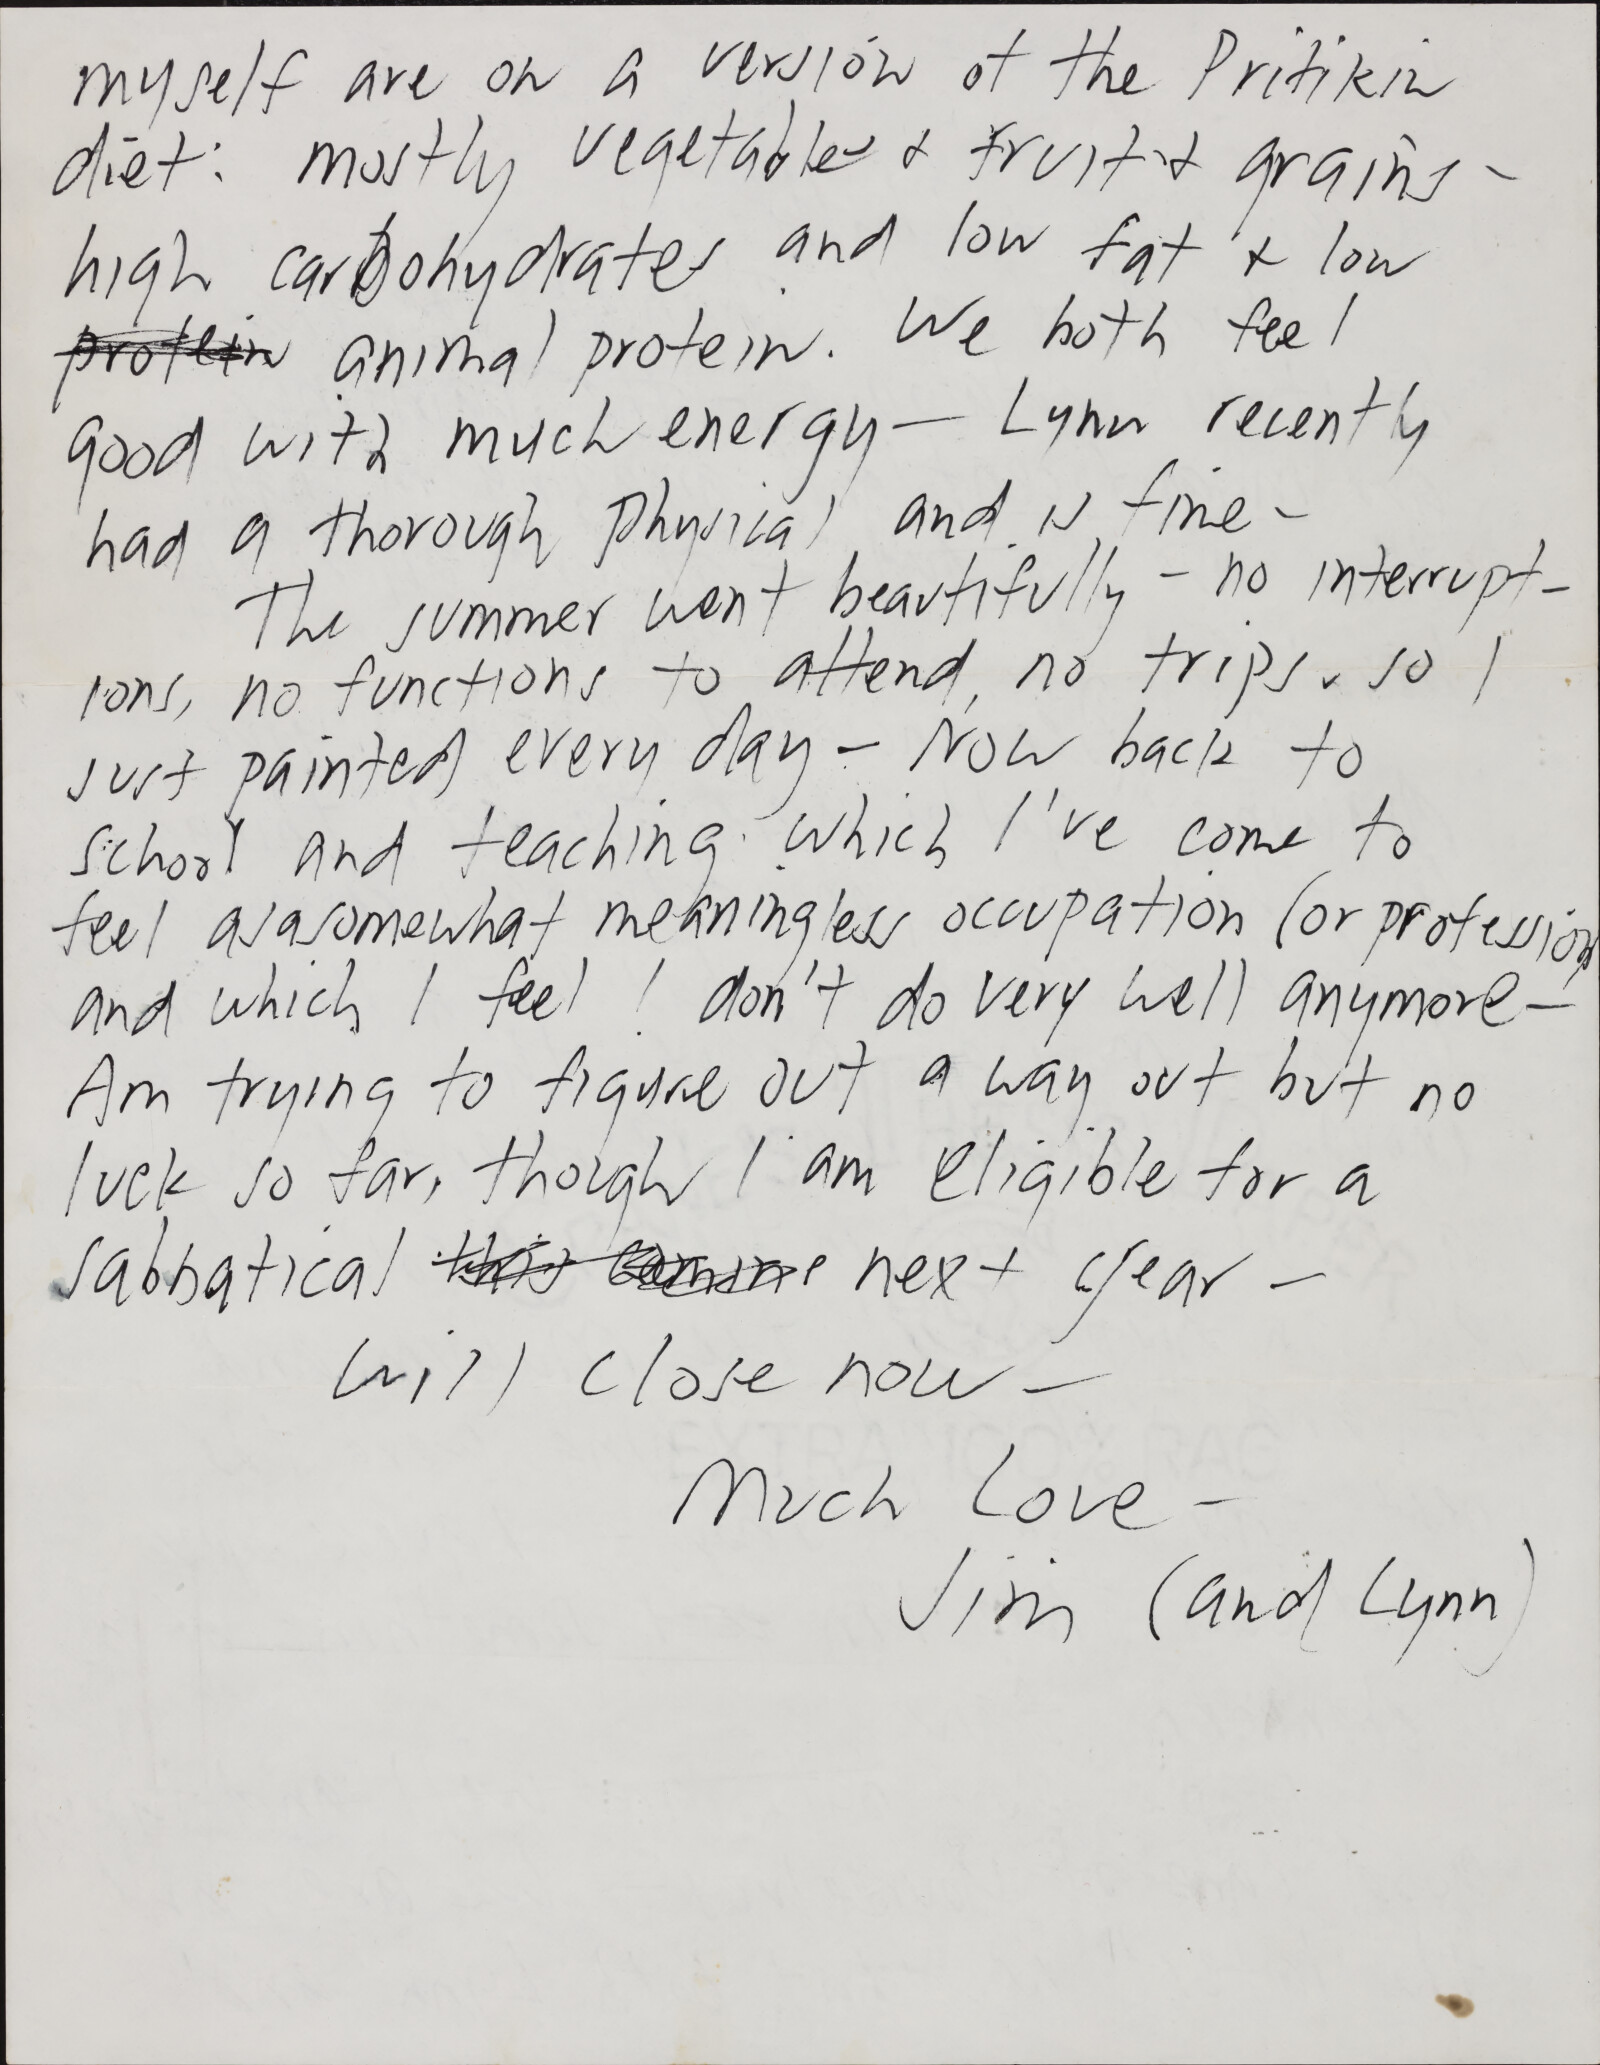 myself are on a version of the Pritikin
diet: mostly vegetables & fruit & grains -
high carbohydrates and low fat & low
protein animal protein. We both feel
good with much energy — Lynn recently
had a thorough physical and is fine -
The summer went beautifully - no interrupt-
ions, no functions to attend, no trips. so I
just painted every day - Now back to
school and teaching which I've come to
feel as a somewhat meaningless occupation (or profession
and which I feel I don't do very well anymore —
Am trying to figure out a way out but no
luck so far, though I am eligible for a
sabbatical this coming next year -
Will close now -
Much Love -
Jim (and Lynn)